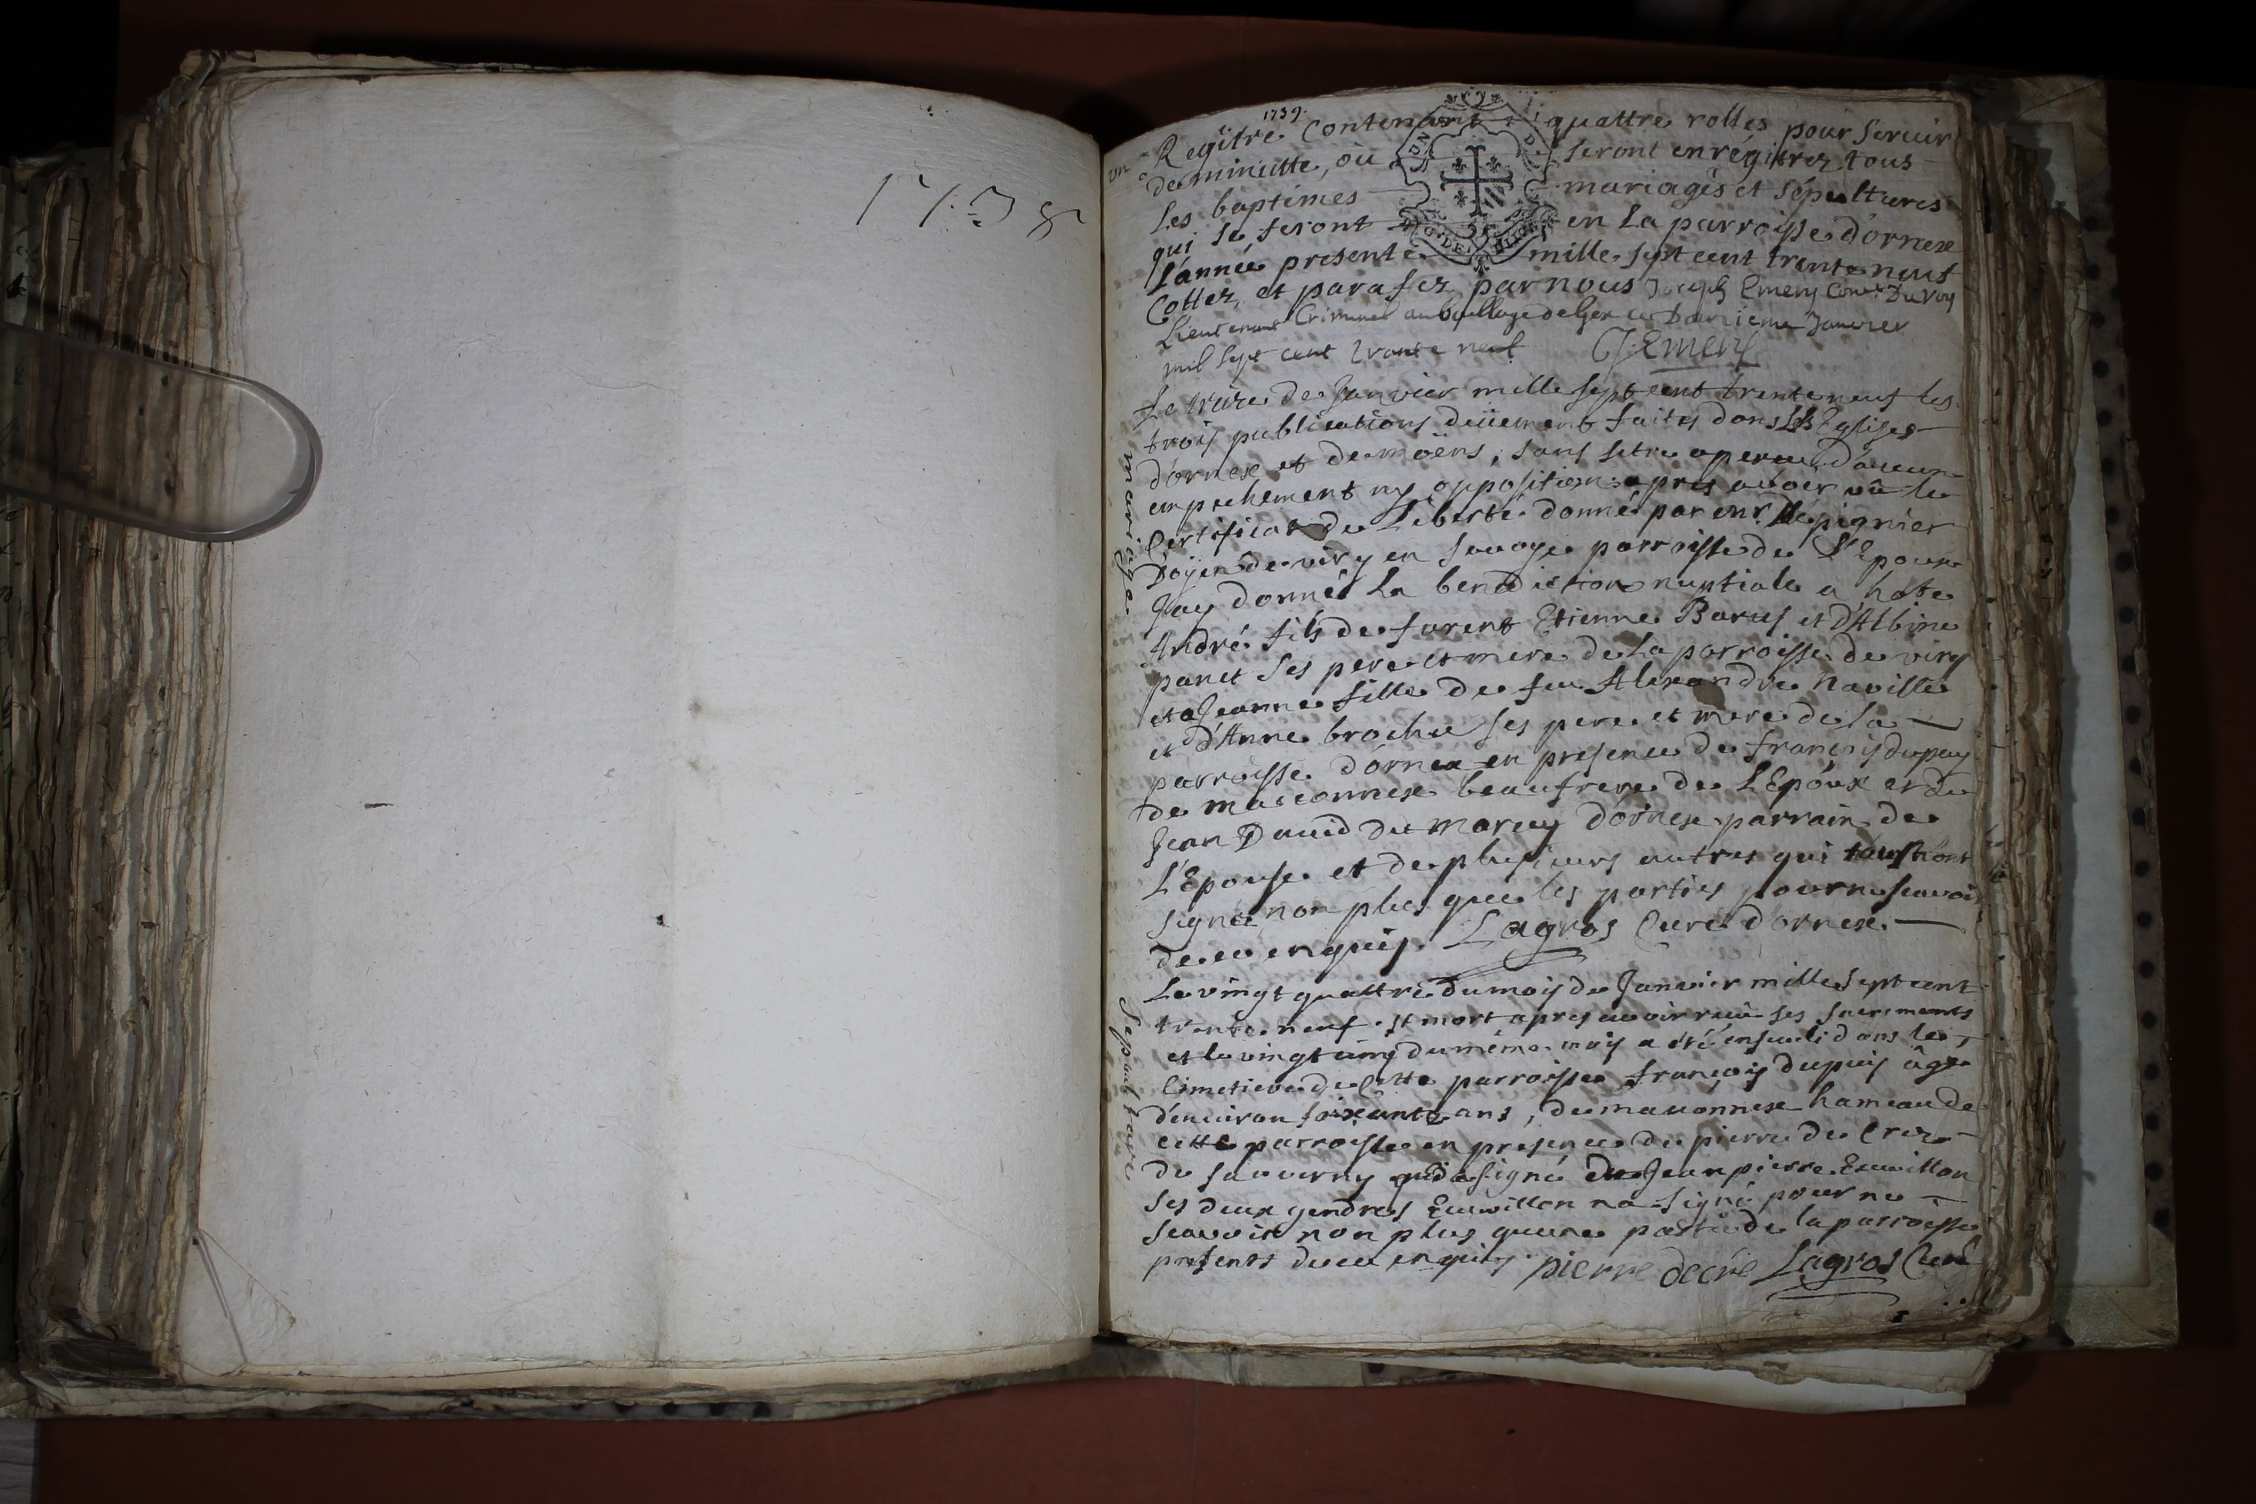 1738
1739.
Regître Contenant quattre rolles pour servir
de minutte, où seront enrégitrez tous
les baptêmes mariages et sépultures
qui se feront en la parroisse d'ornex
l'année presente mille sept cent trente neuf
Cottez, et parafez par nous Joseph Emery Con.er Du Roy
Lieutenant Criminel au bailliage de Gex ce Janvier
mil sept cent trente neuf G. Emery
mariage
Le treize de Janvier mille sept cent trente neuf les
trois publications deüement faites dans les Eglises
d'ornex et de moëns, sans s'etre aperçu d'aucun
empechement ny opposition apres avoir vû le
Certificat de Liberté donné par mr Dépignier
Doÿen de viry en Savoye parroisse de L'Epoux
J'ay donné la benediction nuptiale a
André fils de Etienne Barus et d'Albine
panet ses pere et mere de la parroisse de viry
et a Jeanne fille de feu Alexandre naville
et d'Anne brochu ses pere et mere de la
parroisse d'ornex en presence de françois dupuy
de maconnex beaufrere de L'Epoux et de
Jean David du Marcey d'ornex parrain de
L'Epouse et de plusieurs autres qui tous n'ont
signé non plus que les parties pour ne scavoir
de ce enquis. Lagros Curé d'ornex.
Sepulture
Le vingt quattre du mois de Janvier mille sept cent
trente neuf est mort apres avoir reçu ses sacrements
et le vingt cinq du même mois a été enseveli dans le
Cimetiere de Cette parroisse françois dupuis âgé
d'environ soixante ans, de maconnex hameau de
cette parroisse en presence de pierre de Crez
de sauverny qui a signé et de Jean pierre Ecuvillon
ses deux gendres Ecuvillon n'a signé pour ne
scavoir non plus qu'une partie de la parroisse
presents de ce enquis. pierre decré Lagros Curé